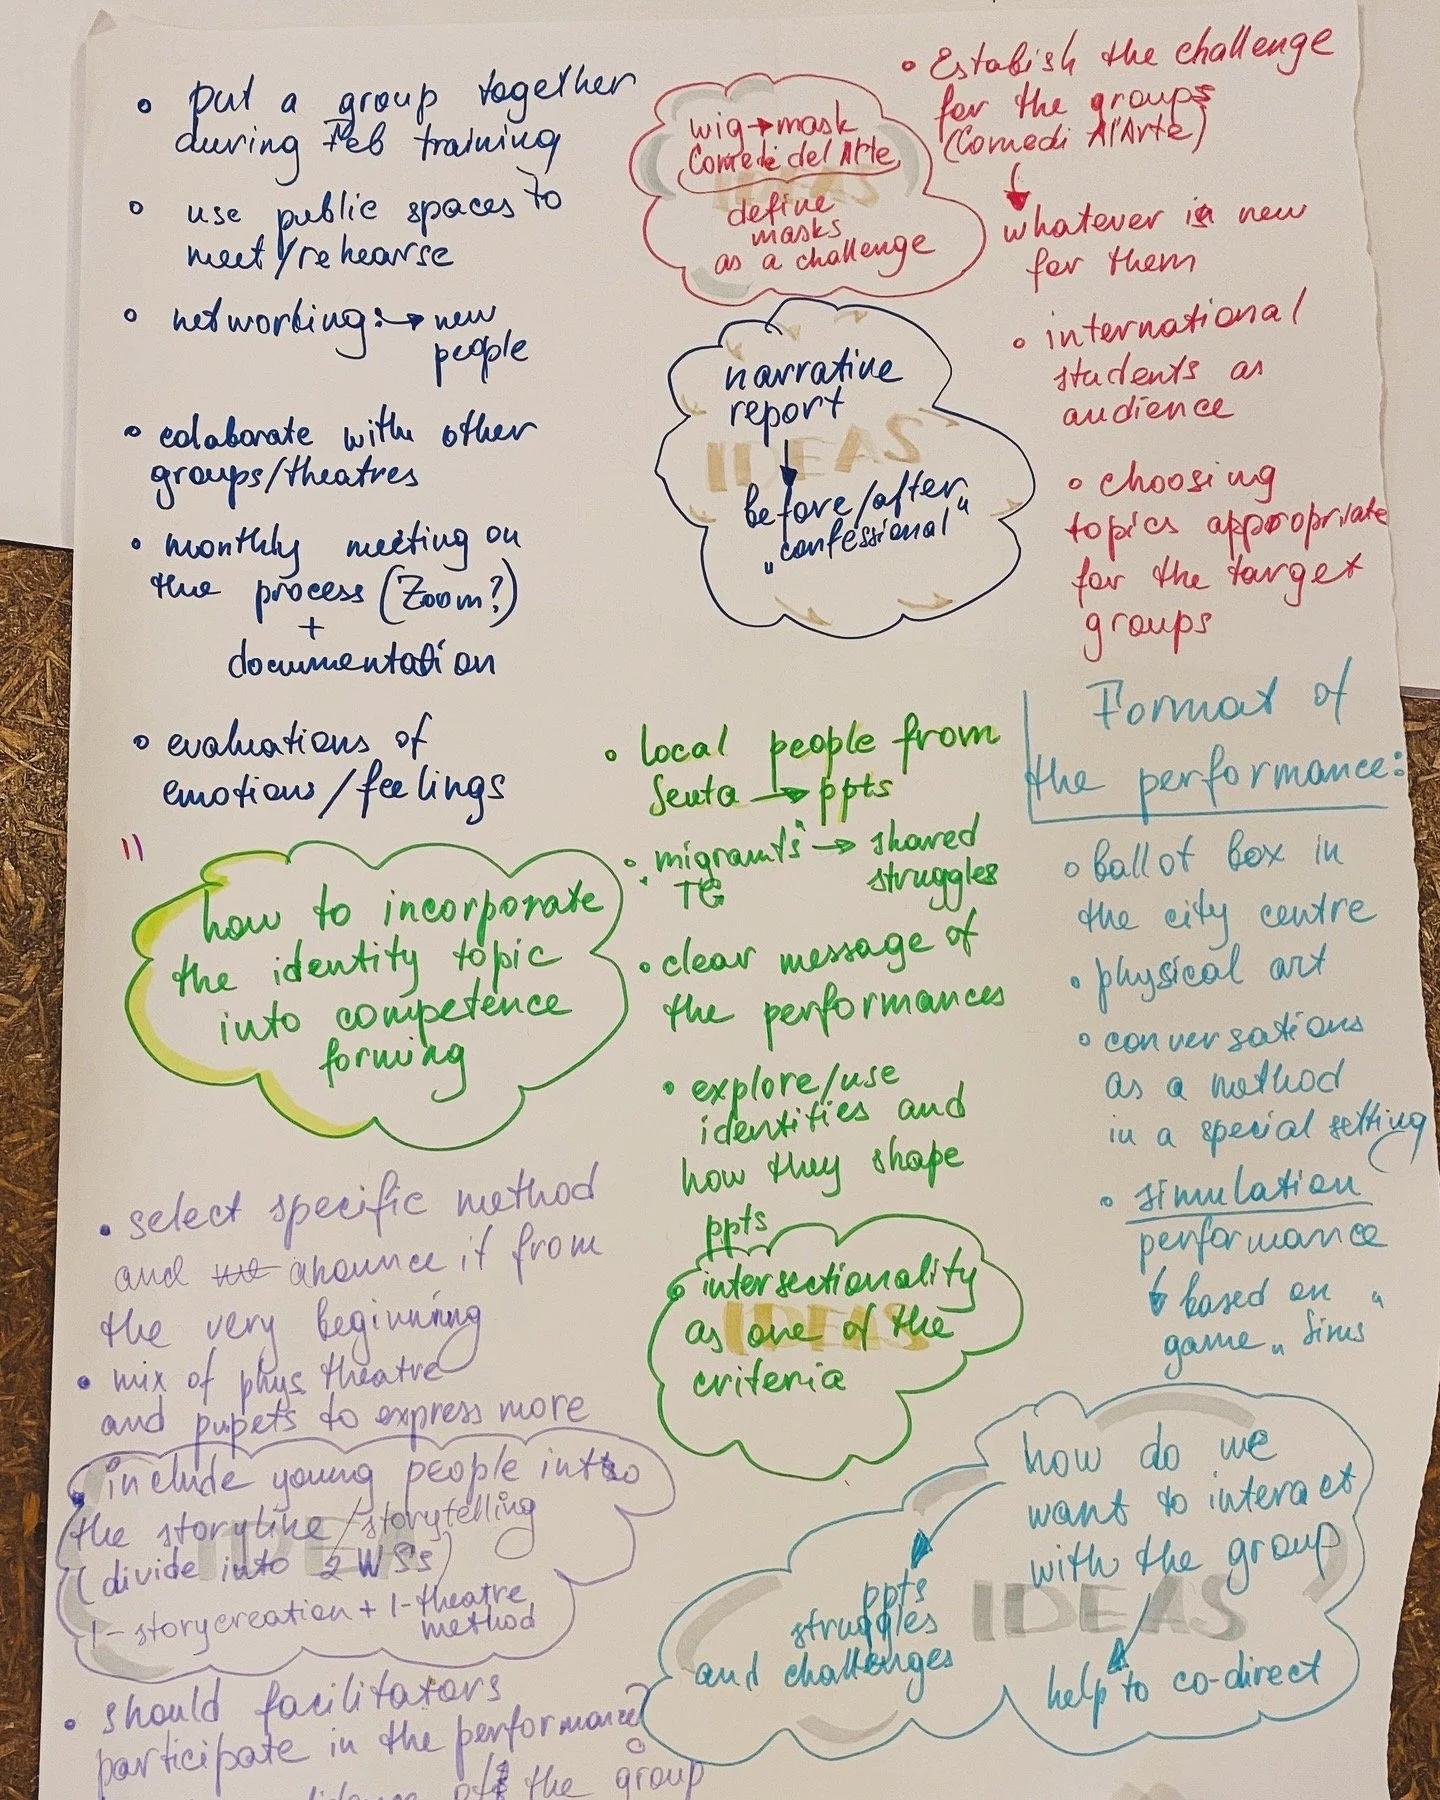 • put a group together
during Feb training
• use public spaces to
meet/rehearse
• networking: → new
people
• colaborate with other
groups/theatres
• monthly meeting on
the process (Zoom?)
+
documentation
• evaluations of
emotions/feelings
wig → mask
Comedi del Arte
define
masks
as a challenge
IDEAS
narrative
report
before/after
„confessional"
IDEAS
• Estabish the challenge
for the groups
(Comedi Al'Arte)
whatever is new
for them
• international
students as
audience
• choosing
topics appropriate
for the target
groups
how to incorporate
the identity topic
into competence
forming
• local people from
Senta → ppts
• „migrants" → shared
struggles
TG
• clear message of
the performances
• explore/use
identities and
how they shape
ppts
• intersectionality
as one of the
criteria
IDEAS
Format of
the performance:
• ballot box in
the city centre
• physical art
• conversations
as a method
in a special setting
• simulation
performance
based on
game „Sims"
• select specific method
and anounce it from
the very beginning
• mix of phys theatre
and pupets to express more
• include young people into
the storyline/storytelling
(divide into 2 WSs)
1-storycreation + 1-theatre
method
• should facilitators
participate in the performance?
the group
how do we
want to interact
with the group
ppts
struggles
and challenges
help to co-direct
IDEAS